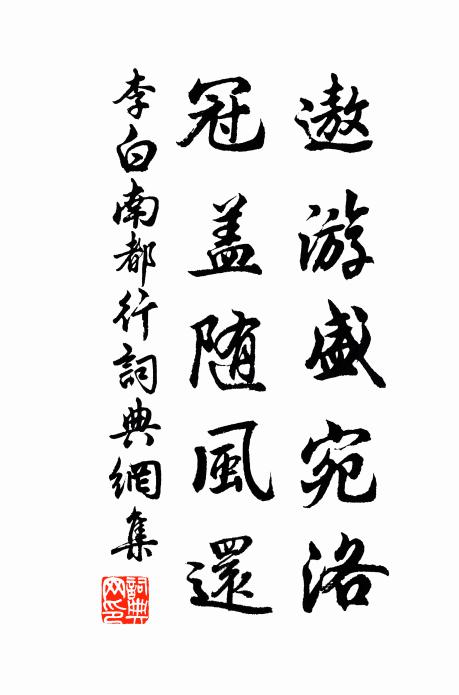 遨游盛宛洛
冠盖随風還
李白南都行詞典網集
詞典網印